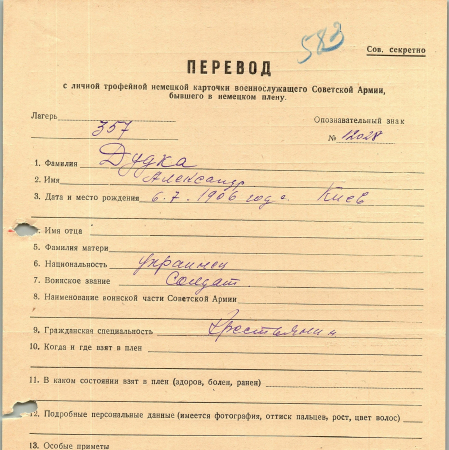 583
Сов. секретно
ПЕРЕВОД
с личной трофейной немецкой карточки военнослужащего Советской Армии,
бывшего в немецком плену.
Лагерь 357
Опознавательный знак
№ 12028
1. Фамилия Дудка
2. Имя Александр
3. Дата и место рождения 6.7.1906 года г. Киев
4. Имя отца
5. Фамилия матери
6. Национальность украинец
7. Воинское звание Солдат
8. Наименование воинской части Советской Армии
9. Гражданская специальность Крестьянин
10. Когда и где взят в плен
11. В каком состоянии взят в плен (здоров, болен, ранен)
12. Подробные персональные данные (имеется фотография, оттиск пальцев, рост, цвет волос)
13. Особые приметы